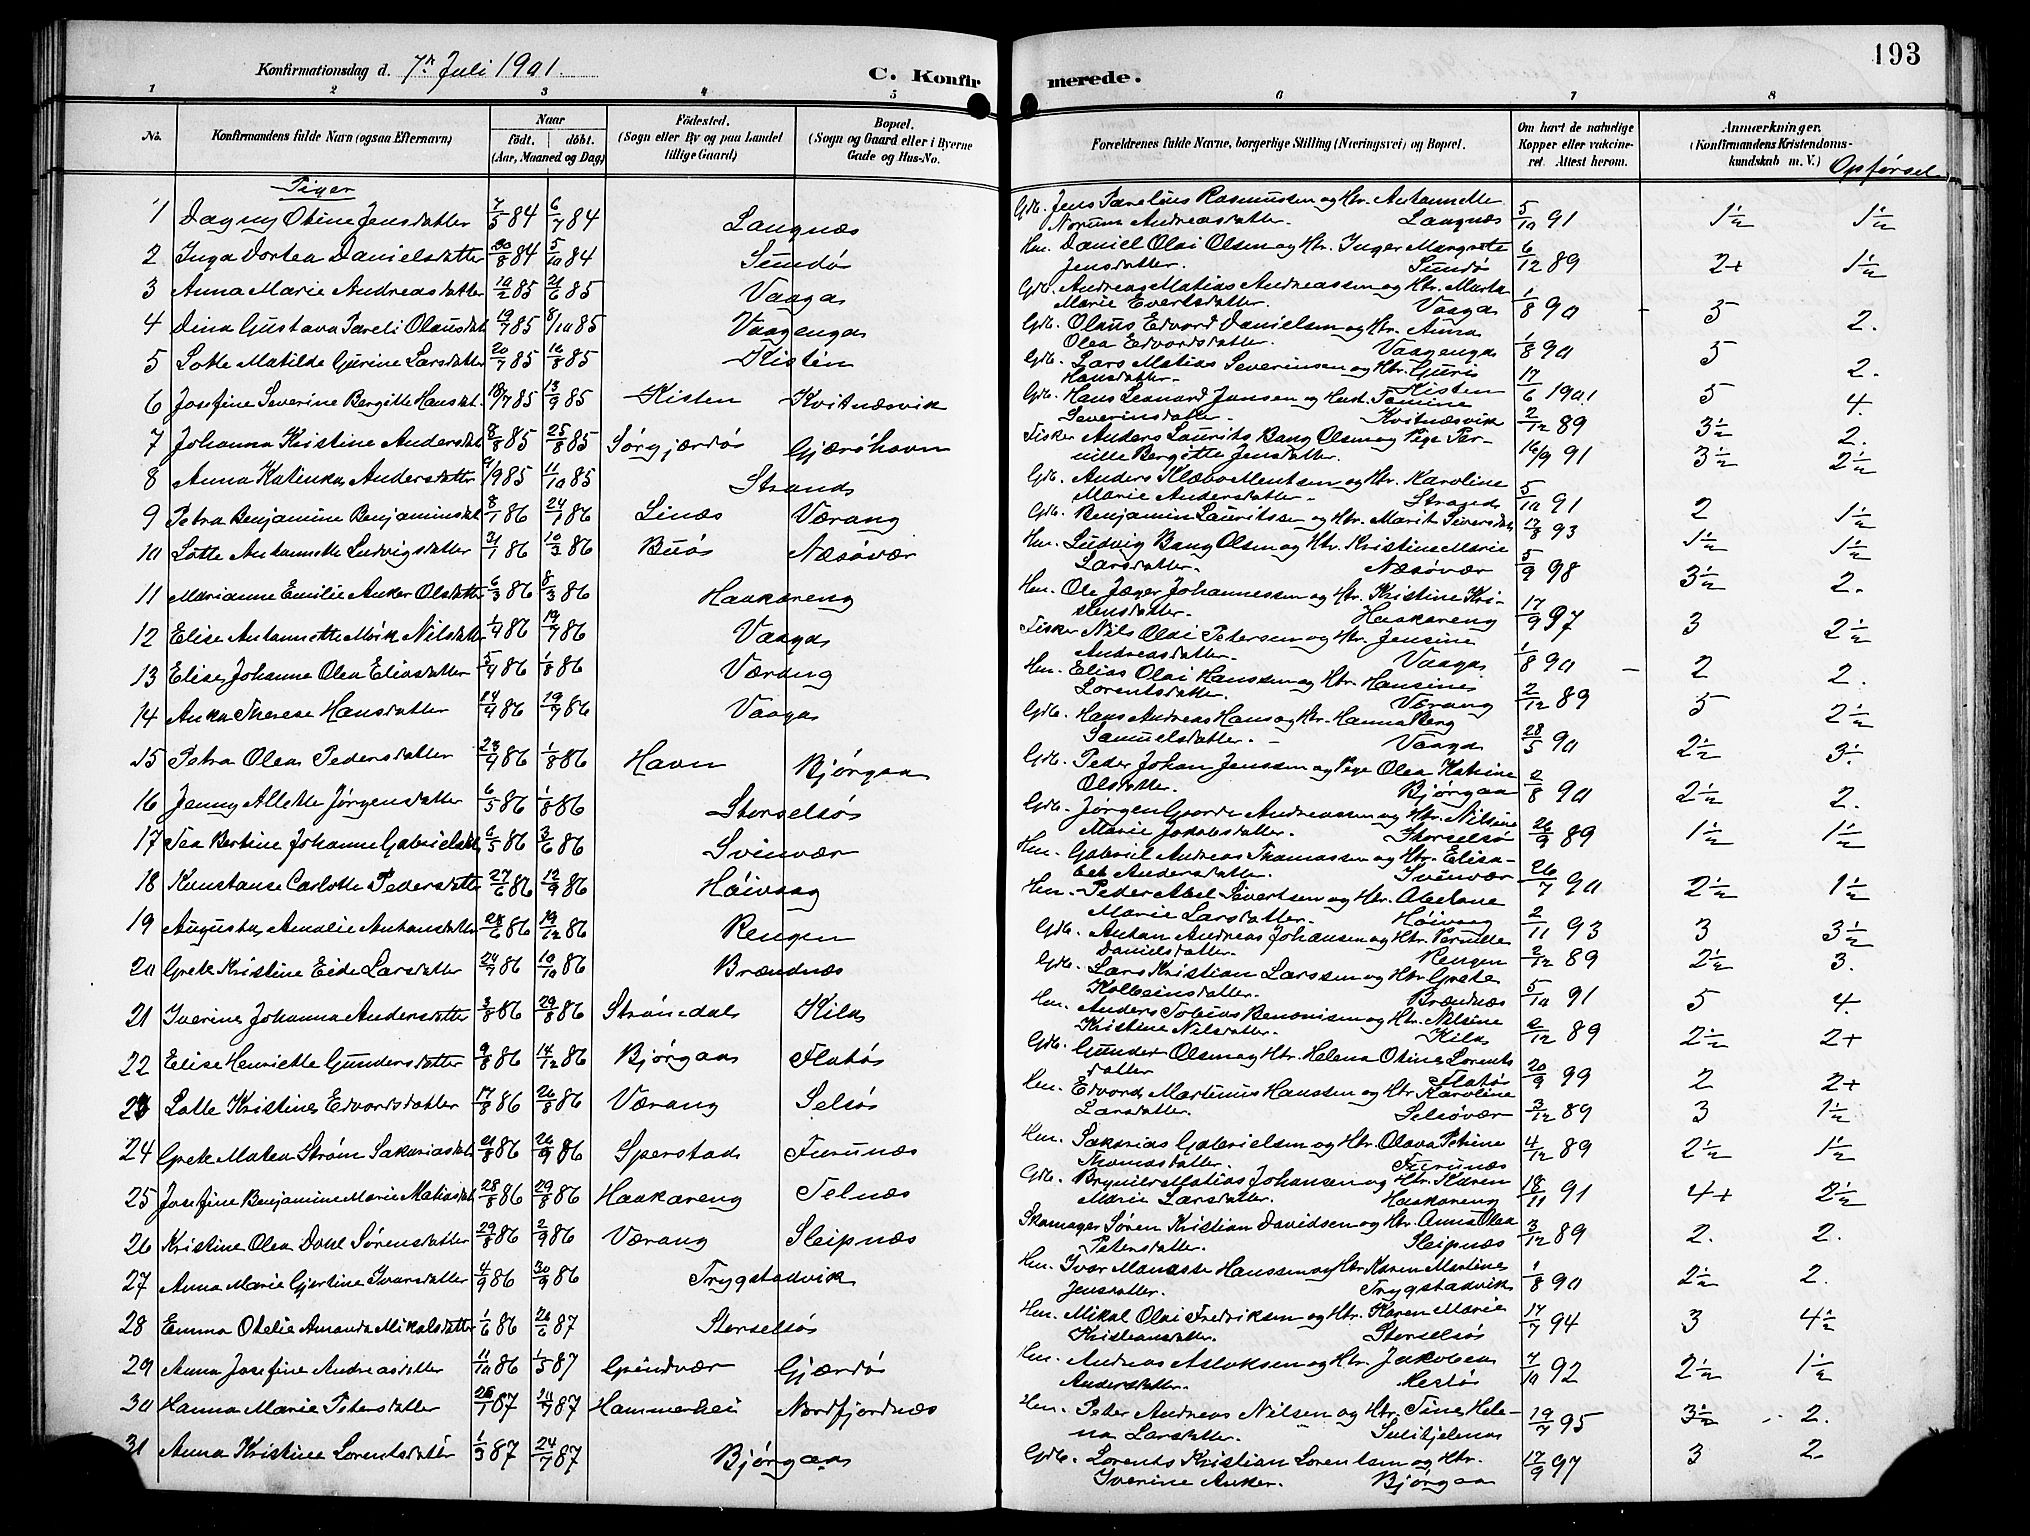 193
Konfirmationsdag d. 7de Juli 1901.
C. Konfirmerede.
1 2 3 4 5 6 7 8
No.
Konfirmandens fulde Navn (ogsaa Efternavn)
Naar
født. døbt.
(Aar, Maaned og Dag)
Fødested.
(Sogn eller By og paa Landet
tillige Gaard)
Bopæl.
(Sogn og Gaard eller i Byerne
Gade og Hus-No.
Forældrenes fulde Navne, borgerlige Stilling (Næringsvei) og Bopæl.
Om havt de naturlige
Kopper eller vaccine-
ret. Attest herom.
Anmærkninger.
(Konfirmandens Kristendoms-
kundskab m. V.) Opførsel
Piger
1 Dagny Otine Jensdatter 7/5 84 6/7 84 Langnæs
Gdb. Jens Parelius Rasmussen og Htr. Antonette
Norum Andreasdatter. Langnæs 5/10 91 1½ 1½
2 Inga Dortea Danielsdatter 30/8 84 5/10 84 Sundø
Hm. Daniel Olai Olsen og Htr. Inger Margrete
Jensdatter. Sundø 6/12 89 2+ 1½
3 Anna Marie Andreasdatter 10/2 85 21/6 85 Vaaga
Gdb. Andreas Matias Andreassen og Htr. Marta
Marie Evertsdatter. Vaaga 1/8 90 5 2.
4 Dina Gustava Pareli Olausdat. 19/7 85 8/10 85 Vaagenga
Gdb. Olaus Edvard Danielsen og Htr. Anna
Olea Edvardsdatter. Vaagenga 1/8 90 5 2.
5 Lotte Matilde Gurine Larsdatter 20/7 85 16/8 85 Kisten
Gdb. Lars Matias Severinsen og Htr. Guris
Hansdatter. Kisten 17/6 1901 5 4.
6 Josefine Severine Bergitte Hansdt. 18/7 85 13/9 85 Kisten Kvitnæsvik
Gdb. Hans Leonard Jansen og Hust. Tomine
Severinsdatter. Kvitnæsvik 2/12 89 3½ 2.
7 Johanna Kristine Andersdt. 8/8 85 25/8 85 Sørgjærøs Gjærshavn
Fisker Anders Laurits Bang Olsen og Pige Per-
nille Bergitte Jensdatter. 16/9 91 3½ 2½
8 Anna Katinka Andersdatter 9/9 85 11/10 85 Strand
Gdb. Anders Klæbo Mentsen og Htr. Karoline
Marie Andersdatter. Strand 5/10 91 2 1½
9 Petra Benjamine Benjaminsdat. 8/1 86 24/1 86 Linæs Værang
Gdb. Benjamin Lauritssen og Htr. Marit Siversdat. 17/8 93 1½ 1½
10 Lotte Antonette Ludvigsdatter 31/1 86 10/3 86 Buøs Næsøvær
Hm. Ludvig Bang Olsen og Htr. Kristine Marie
Larsdatter. Næsøvær 5/9 98 3½ 2.
11 Marianne Emilie Anker Olsdatter 6/3 86 8/3 86 Haakareng
Hm. Ole Jæger Johannessen og Htr. Kristine Kri-
stensdatter. Haakareng 17/9 97 3 2½
12 Elise Antonette Mørk Nilsdatter 1/4 86 19/7 86 Vaaga
Fisker Nils Olai Petersen og Htr. Jensine
Andreasdatter. Vaaga 1/8 90 2 2.
13 Elise Johanne Olea Eliasdatter 5/4 86 1/8 86 Værang
Hm. Elias Olai Hanssen og Htr. Hansine
Lorentsdatter. Værang 2/12 89 5 2½
14 Anka Therese Hansdatter 14/4 86 19/7 86 Vaaga
Gdb. Hans Andreas Hans og Htr. Hanna Berg
Samuelsdatter. Vaaga 28/5 90 2½ 3.
15 Petra Olea Pedersdatter 23/4 86 1/8 86 Havn Bjørgaa
Gdb. Peder Johan Jenssen og Pige Olea Katrine
Olsdatter. Bjørgaa 2/8 90 2½ 2.
16 Jenny Allette Jørgensdatter 6/5 86 1/8 86 Storselsø
Gdb. Jørgen Gaarde Andreassen og Htr. Nilsine
Marie Jakobsdatter. Storselsø 26/9 89 1½ 1½
17 Tea Bertine Johanne Gabrielsdt. 6/5 86 3/6 86 Svinvær
Hm. Gabriel Andreas Thomassen og Htr. Elisa-
bet Andersdatter. Svinvær 26/7 90 2½ 1½
18 Konstanse Carlotte Pedersdatter 27/6 86 12/9 86 Høivaag
Hm. Peder Abel Sivertsen og Htr. Abelone
Marie Larsdatter. Høivaag 2/11 93 3 3½
19 Augusta Amalie Antonsdatter 28/6 86 19/12 86 Rengen
Gdb. Anton Andreas Johansen og Htr. Pernille
Danielsdatter. Rengen 2/12 89 2½ 3.
20 Grete Kristine Eide Larsdatter 24/7 86 10/10 86 Brændnæs
Gdb. Lars Kristian Larssen og Htr. Grete
Kolbeinsdatter. Brændnæs 5/10 91 5 4.
21 Iverine Johanna Andersdatter 3/8 86 29/8 86 Strømdal Kila
Hm. Anders Tobias Benonisen og Htr. Nilsine
Kristine Nilsdatter. Kila 2/12 89 2½ 2+
22 Elise Henriette Gundersdatter 9/8 86 14/12 86 Bjørgaa Flatøs
Gdb. Gunder Olsen og Htr. Helena Otine Lorents
datter Flatøs 20/9 99 2 2+
23 Lotte Kristine Edvardsdatter 17/8 86 26/8 86 Værang Selsøs
Hm. Edvard Martinus Hanssen og Htr. Karoline
Larsdatter. Selsøvær 3/12 89 3 1½
24 Grete Matea Strøm Sakariasdat. 21/8 86 26/9 86 Sperstad Furunæs
Hm. Sakarias Gabrielsen og Htr. Olava Petrine
Thomasdatter. Furunæs 4/12 89 2½ 1½
25 Josefine Benjamine Marie Matiasdat. 28/8 86 29/8 86 Haakareng Telnæs
Gdb. Brynild Matias Johansen og Htr. Karen
Marie Larsdatter. Haakareng 18/11 91 4+ 2½
26 Kristine Olea Dahl Sørensdatter 29/8 86 2/9 86 Værang Sleipnæs
Skomager Søren Kristian Davidsen og Htr. Anna Olea
Petersdatter. Sleipnæs 3/12 89 2. 2.
27 Anna Marie Gjertine Ivarsdatter 4/9 86 30/9 86 Trygstadvik
Hm. Ivar Manasse Hanssen og Htr. Karen Martine
Jensdatter. Trygstadvik 1/8 90 2½ 2.
28 Emma Otelie Amanda Mikalsdatter 1/6 86 26/6 87 Storselsøs
Hm. Mikal Olai Fredriksen og Htr. Karen Marie
Kristiansdatter. Storselsøs 17/7 94 3 4½
29 Anna Josefine Andreasdatter 11/10 86 1/5 87 Grindvær Gjærdøs
Hm. Andreas Aslaksen og Htr. Jakobea
Andersdatter. Hestøs 7/10 92 2½ 1½
30 Hanna Marie Petersdatter 26/1 87 24/7 87 Hammerhei Nordfjordnæs
Hm. Peter Andreas Nilsen og Htr. Tine Hele-
na Larsdatter. Sulitjelma 19/7 95 3½ 2.
31 Anna Kristine Lorentsdatter 1/3 87 24/7 87 Bjørgaa
Gdb. Lorents Kristian Lorentsen og Htr.
Iverine Anker. Bjørgaa 17/9 97 3 2.